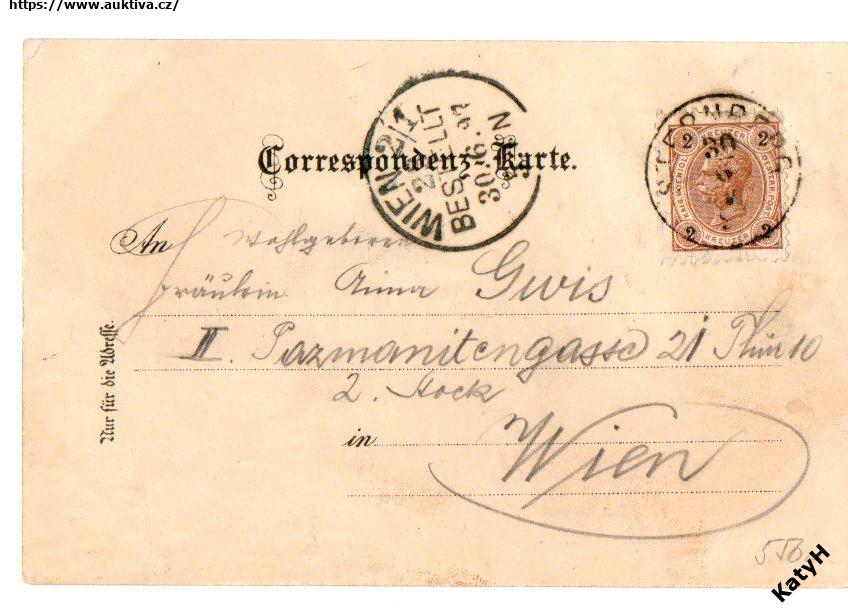 https://www.auktiva.cz/
Correspondenz-Karte.
WIEN 2/1
BESTELLT
30.6.
STERNBERG
30
2 KREUZER 2
2 KREUZER 2
An Wohlgeboren
Fräulein Anna Gwis
II. Pazmanitengasse 21 Thür 10
2. Stock
in Wien
Nur für die Adresse.
KatyH